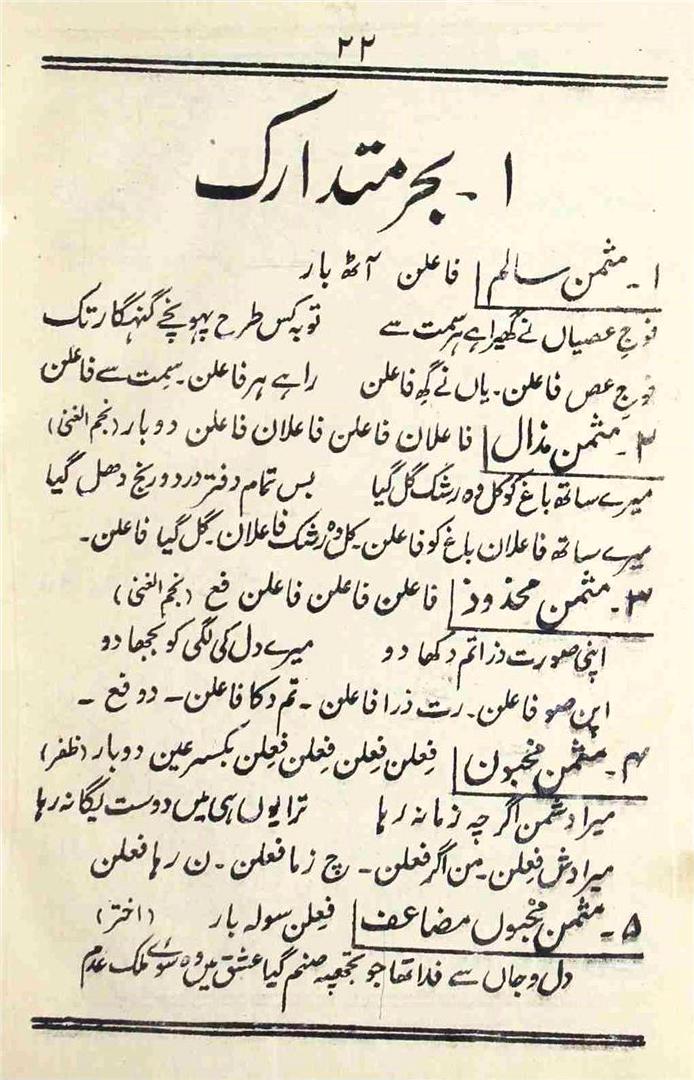 ۲۲
۱۔ بحر متدارک
۱۔ مثمن سالم فاعلن آٹھ بار
فوجِ عصیاں نے گھیرا ہے ہر سمت سے توبہ کس طرح پہونچے گنہگار تک
فوجِ عص فاعلن۔ یاں نے گھِ فاعلن را ہے ہر فاعلن۔ سمِت سے فاعلن
۲۔ مثمن مذال فاعلان فاعلن فاعلان فاعلن دوبار (نجم الغنی)
میرے ساتھ باغ کو کل وہ رشک گل گیا بس تمام دفتر درد و رنج دھل گیا
میرے ساتھ فاعلان باغ کو فاعلن۔ کل وہ رشک فاعلان۔ گل گیا فاعلن۔
۳۔ مثمن محذوذ فاعلن فاعلن فاعلن فع (نجم الغنی)
اپنی صورت ذرا تم دکھا دو میرے دل کی لگی کو بجھا دو
اپن صو فاعلن۔ رت ذرا فاعلن۔ تم دکا فاعلن۔ دو فع۔
۴۔ مثمن مخبون فعِلن فعِلن فعِلن فعِلن بکسر عین دوبار (ظفر)
میرا دشمن اگرچہ زمانہ رہا ترا یوں ہی میں دوست یگانہ رہا
میرا دش فعِلن۔ من اگر فعلن۔ چ زما فعلن۔ ن رہا فعلن
۵۔ مثمن مخبوں مضاعف فعِلن سولہ بار (اختر)
دل و جاں سے فدا تھا جو تجھپہ صنم گیا عشق میں وہ سوئے ملک عدم